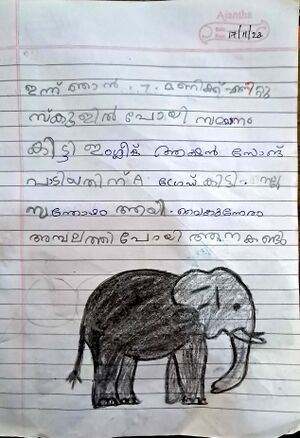 Ajantha
17/11/23
ഇന്ന് ഞാൻ . 7 . മണിക്ക് എണീറ്റു
സ്കൂളിൽ പോയി സമ്മാനം
കിട്ടി ഇംഗ്ലീഷ് ആക്ഷൻ സോങ്
പാടിയതിന് A ഗ്രേഡ് കിട്ടി. നല്ല
സന്തോഷം ആയി. വൈകുന്നേരം
അമ്പലത്തി പോയി ആനകണ്ടു